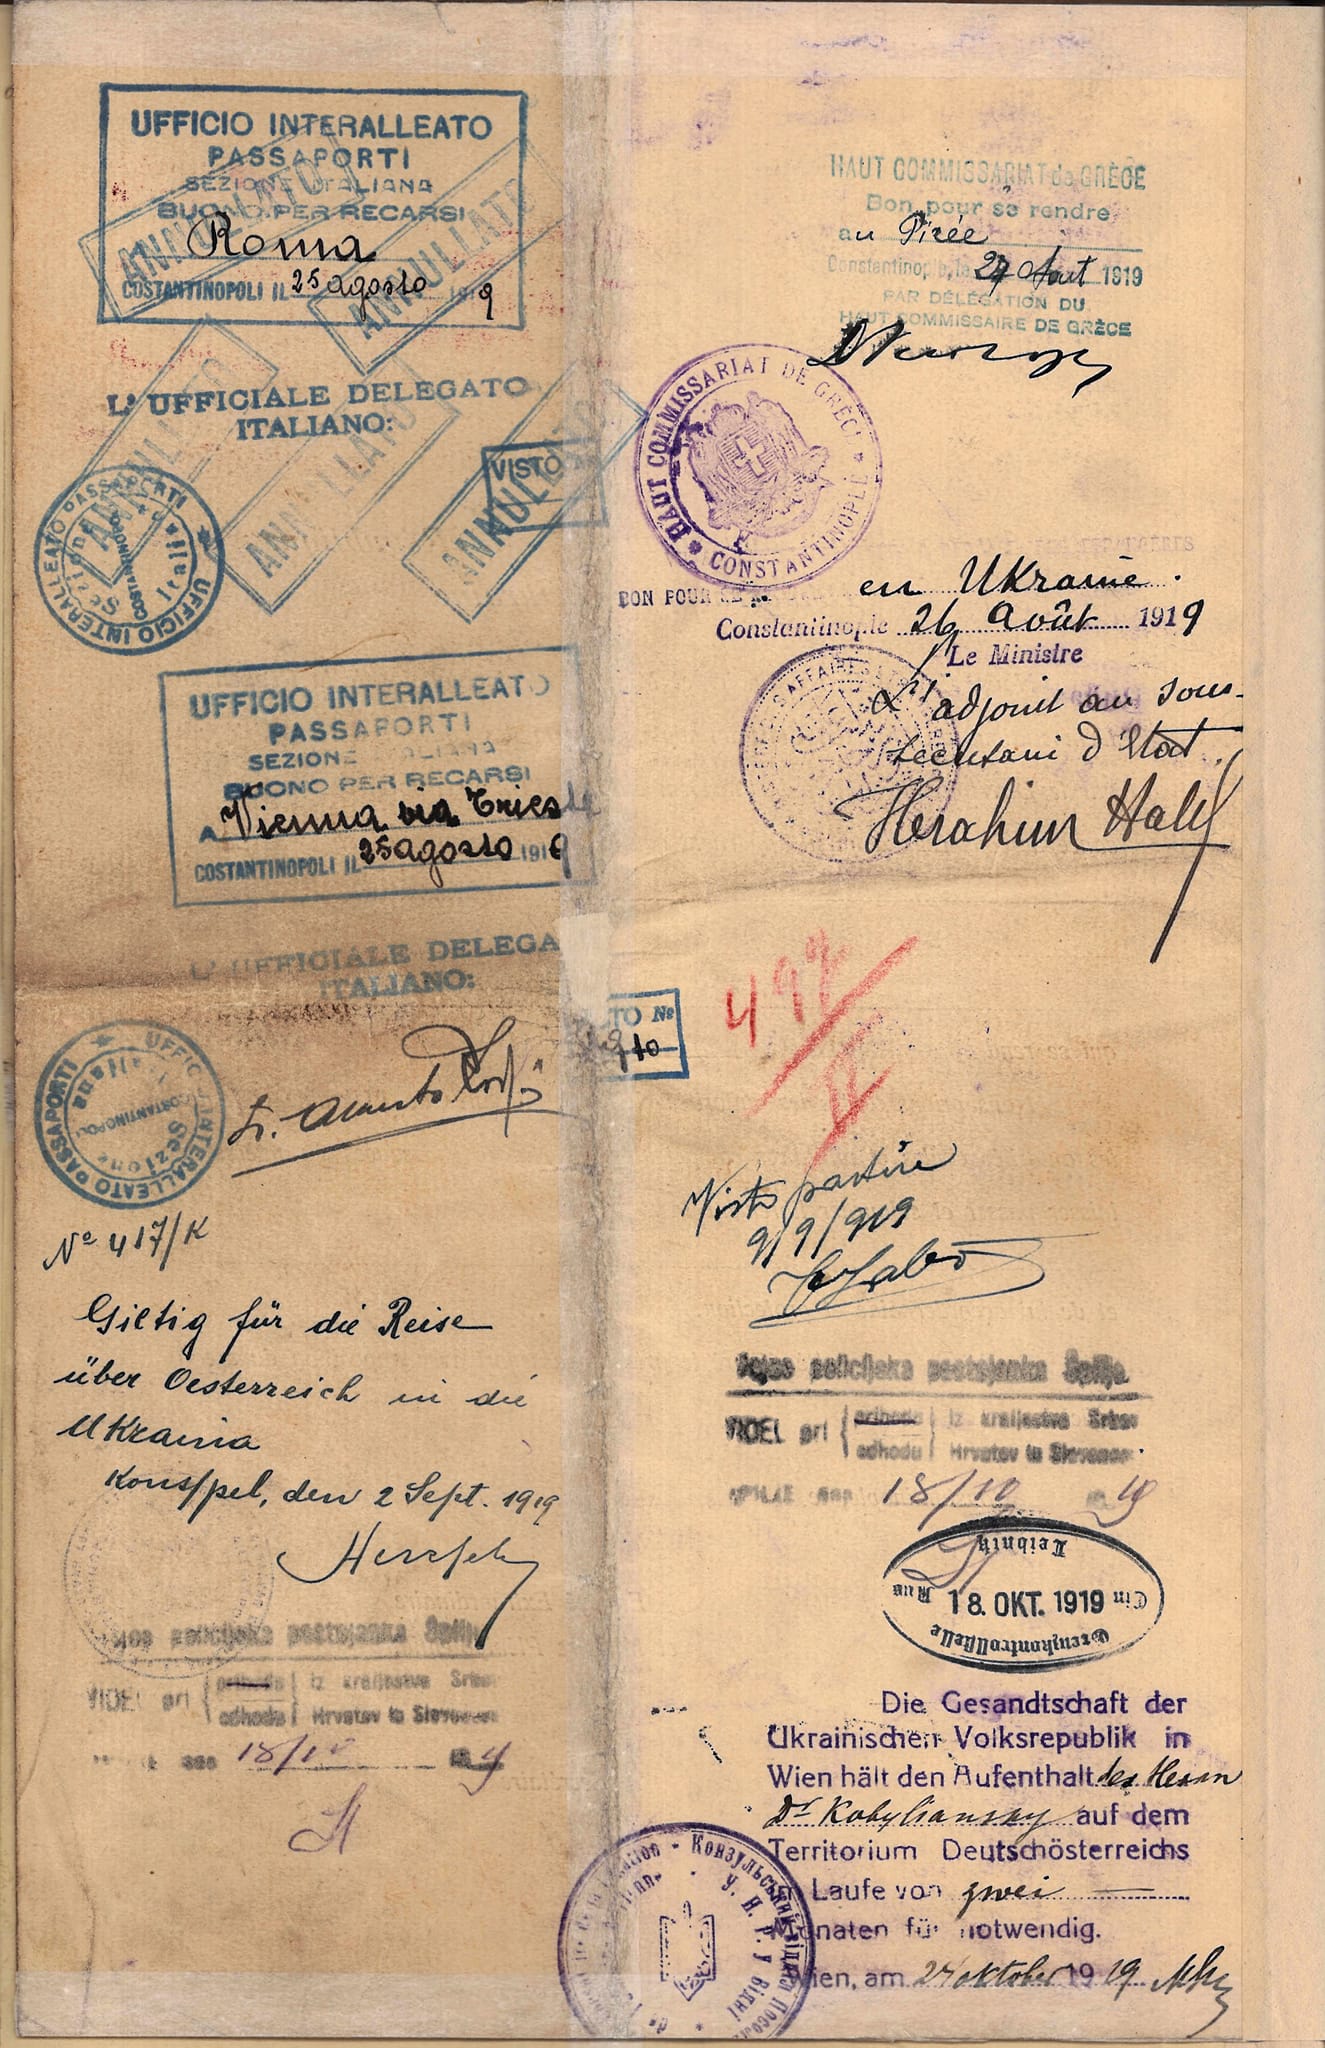 UFFICIO INTERALLEATO
PASSAPORTI
SEZIONE ITALIANA
BUONO PER RECARSI
Roma
COSTANTINOPOLI IL 25 agosto 1919
ANNULLATO
ANNULLATO
L' UFFICIALE DELEGATO
ITALIANO:
ANNULLATO
ANNULLATO
ANNULLATO
VISTO
UFFICIO INTERALLEATO PASSAPORTI
Sezione Italiana
COSTANTINOPOLI
UFFICIO INTERALLEATO
PASSAPORTI
SEZIONE ITALIANA
BUONO PER RECARSI
A Vienna via Trieste
COSTANTINOPOLI IL 25 agosto 1919
L' UFFICIALE DELEGA
ITALIANO:
TO No
UFFICIO INTERALLEATO PASSAPORTI
Sezione Italiana
COSTANTINOPOLI
No 417/K
Giltig für die Reise
über Oesterreich in die
Ukraina
Kons/pel, den 2 Sept. 1919
policijska postojanka Špilje
VIDEL pri { prihodu / odhodu } iz kraljestva Srbov
Hrvatov in Slovencev
18/10 19
HAUT COMMISSARIAT de GRÈCE
Bon pour se rendre
au Pirée
Constantinople, le 27 Aout 1919
PAR DÉLÉGATION DU
HAUT COMMISSAIRE DE GRÈCE
HAUT COMMISSARIAT DE GRÈCE
CONSTANTINOPLE
BON POUR SE RENDRE en Ukraine.
Constantinople 26 Août 1919
Le Ministre
L'adjoint au Sous-
secrétaire d'Etat
492
II
Visto partire
9/9/919
policijska postojanka Špilje
VIDEL pri { prihodu / odhodu } iz kraljestva Srbov
Hrvatov in Slovencev.
18/10 19
Leibnitz
Ein 18. OKT. 1919 Aus
Grenzkontrollstelle
Die Gesandtschaft der
Ukrainischen Volksrepublik in
Wien hält den Aufenthalt des Herrn
Dr Kobyliansky auf dem
Territorium Deutschösterreichs
im Laufe von zwei
Monaten für notwendig.
Wien, am 27 oktober 1919
Консульський відділ
У. Н. Р. у Відні